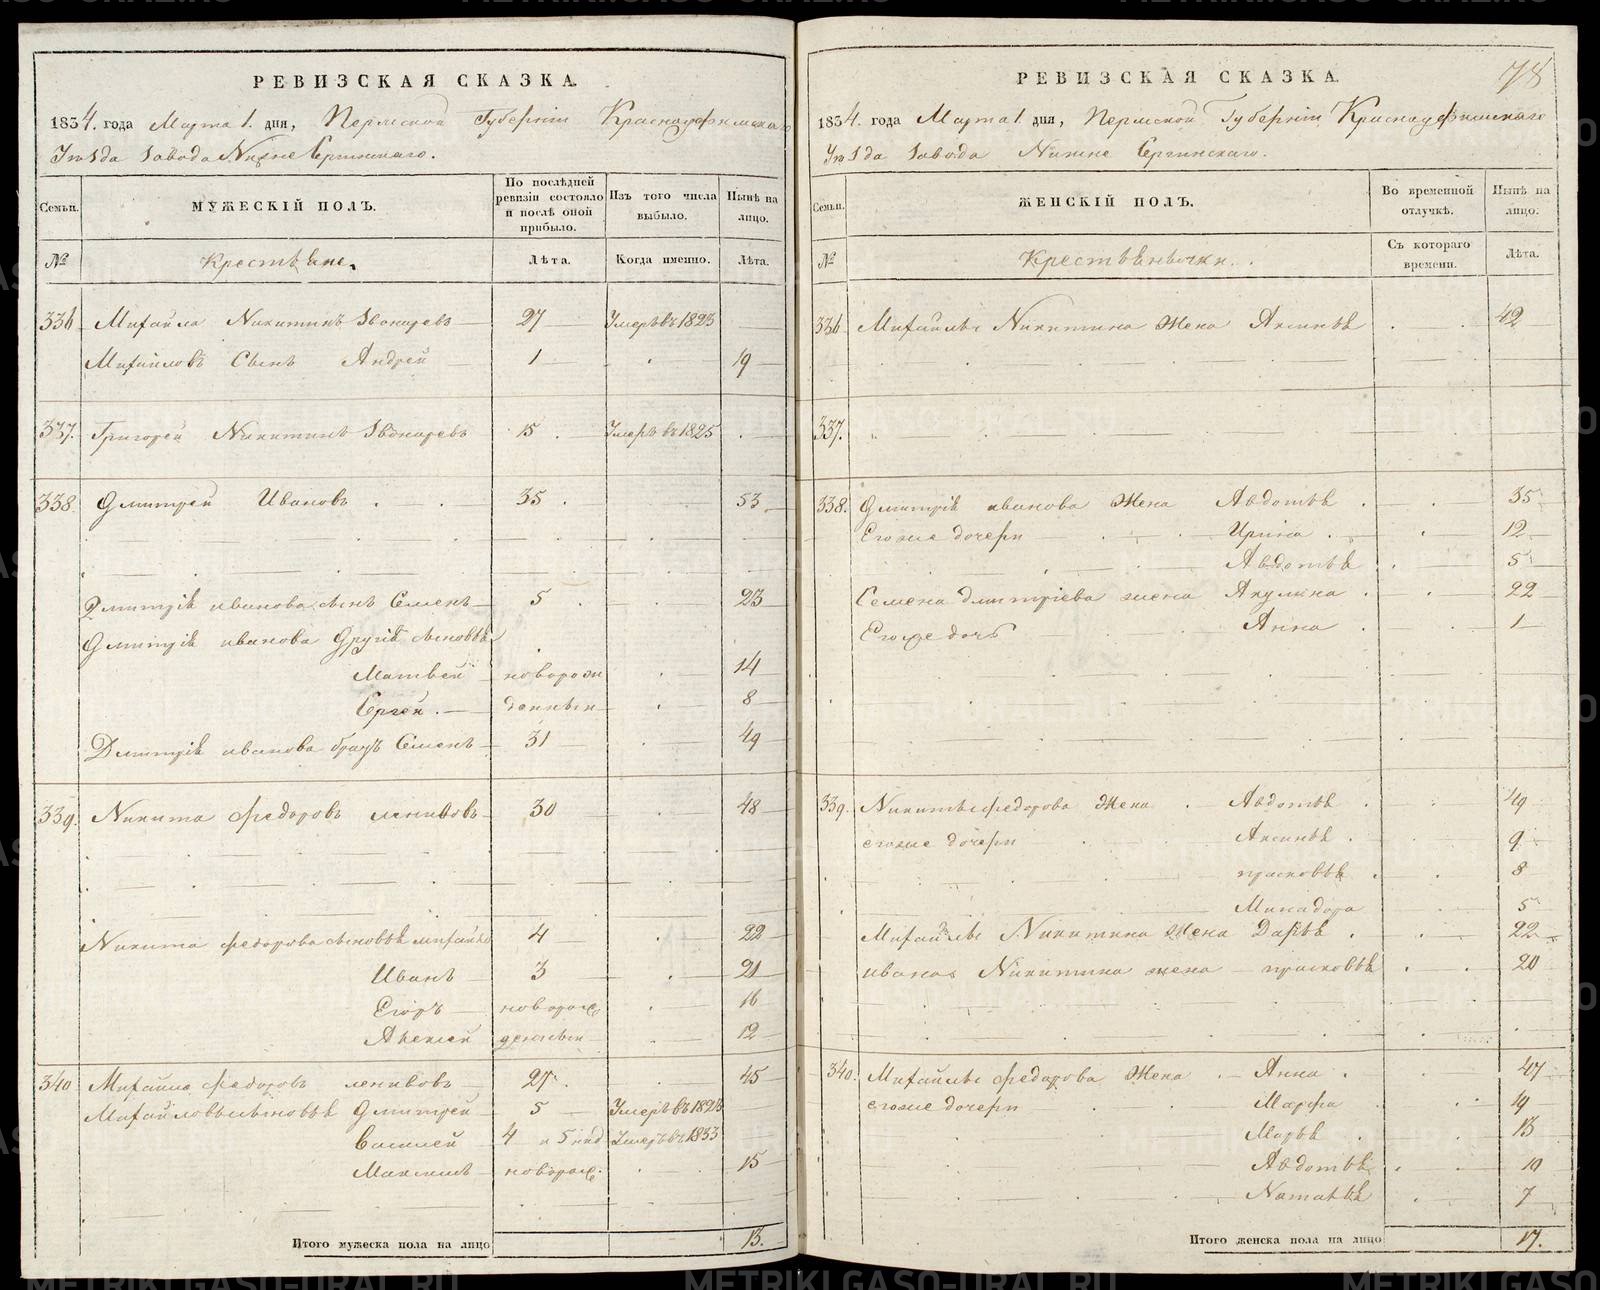 РЕВИЗСКАЯ СКАЗКА.
1834. года Марта 1. дня, Пермской Губерніи Красноуфимскаго
Уѣзда Завода Нижне Сергинскаго.
Семьи. МУЖЕСКІЙ ПОЛЪ. По послѣдней ревизіи состояло и послѣ оной прибыло. Изъ того числа выбыло. Нынѣ на лицо.
№ Крестьяне. Лѣта. Когда именно. Лѣта.
336 Михайла Никитинъ Звонаревъ 27 Умеръ въ 1823
Михайловъ Сынъ Андрей 1 19
337. Григорей Никитинъ Звонаревъ 15 Умеръ въ 1825
338 Дмитрей Ивановъ 35 53
Дмитрія иванова сынъ Семенъ 5 23
Дмитрія иванова Другія сыновья
Матвей новорож 14
Сергей денныи 8
Дмитрія иванова братъ Семенъ 31 49
339. Никита федоровъ ленивовъ 30 48
Никита федорова сыновья михайло 4 22
Иванъ 3 21
Егоръ новорож 16
Алексей денныи 12
340 Михайло федоровъ ленивовъ 27 45
Михайловы сыновья Дмитрей 5 Умеръ въ 1823
Василей 4 Умеръ въ 1833
Максимъ новорож. 15
Итого мужеска пола на лицо 13.
РЕВИЗСКАЯ СКАЗКА. 78
1834. года Марта 1. дня, Пермской Губерніи Красноуфимскаго
Уѣзда Завода Нижне Сергинскаго.
Семьи. ЖЕНСКІЙ ПОЛЪ. Во временной отлучкѣ. Нынѣ на лицо.
№ Съ котораго времени. Лѣта.
336 Михайлы Никитина Жена Аксинья 42
337.
338. Дмитрія иванова Жена Авдотья 35
Егоже дочери Ирина 12
Авдотья 5
Семена дмитріева жена Акулина 22
Егоже дочь Анна 1
339. Никиты федорова Жена Авдотья 49
егоже дочери Аксинья 9
прасковья 8
Минадора 5
Михайлы Никитина Жена Дарья 22
ивана Никитина жена прасковья 20
340. Михайлы федорова Жена Анна 47
егоже дочери Марфа 19
Марья 13
Авдотья 10
Наталья 7
Итого женска пола на лицо 17.
METRIKI.GASO-URAL.RU